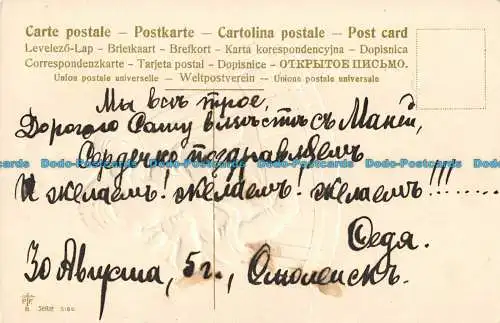 Carte postale – Postkarte – Cartolina postale – Post card
Levelező-Lap – Briefkaart – Brefkort – Karta korespondencyjna – Dopisnica
Correspondenzkarte – Tarjeta postal – Dopisnice – ОТКРЫТОЕ ПИСЬМО.
Union postale universelle – Weltpostverein – Unione postale universale
Мы всѣ трое,
Дорогого Сашу вмѣстѣ съ Маней,
Сердечно поздравляемъ
И желаемъ! желаемъ! желаемъ!!!........
Федя.
30 Августа, 5 г., Смоленскъ.
Serie
Dodo-Postcards Dodo-Postcards Dodo-Postcards Dodo-Postcards